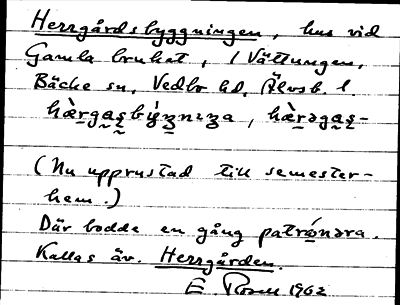 Herrgårdsbyggningen, hus vid
Gamla bruket, i Vättungen,
Bäcke sn, Vedbo hd, Älvsb. l.
hæ̀rga̰s̰býʒ̰nıʒa, hæ̀rəga̰s̰-
(Nu upprustad till semester-
hem.)
Där bodde en gång patrónəra.
Kallas äv. Herrgården.
E. Rosell 1962